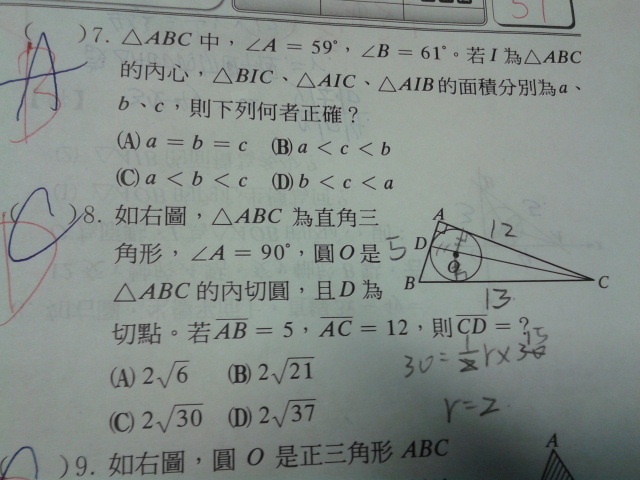 51
A
( )7. △ABC 中，∠A = 59°，∠B = 61°。若 I 為△ABC
的內心，△BIC、△AIC、△AIB的面積分別為a、
b、c，則下列何者正確？
(A) a = b = c (B) a < c < b
(C) a < b < c (D) b < c < a
C
( )8. 如右圖，△ABC 為直角三
角形，∠A = 90°，圓 O 是
△ABC 的內切圓，且 D 為
切點。若 AB = 5，AC = 12，則 CD = ？
(A) 2√6 (B) 2√21
(C) 2√30 (D) 2√37
A
12
5
D
O
B
C
13
30 = 1/2 r × 30
15
r = 2
( )9. 如右圖，圓 O 是正三角形 ABC
A